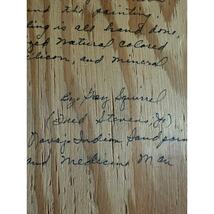 and the painti
ing is all hand done,
zed natural colored
silicon, and mineral
By: Gray Squirrel
(Fred Stevens, Jr)
Navajo Indian Sandpain
and Medicine Man